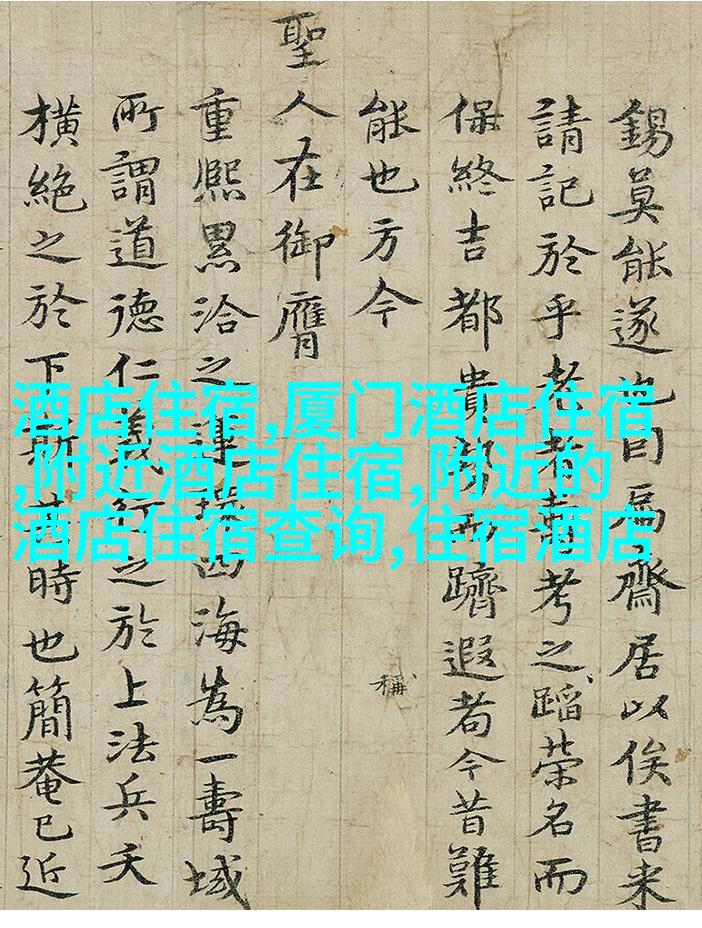 錫莫能遂也曰為齋居以俟書来
請記於乎老者壽考之蹈榮名而
保終吉都貴勢而躋遐耇今昔難
能也方今
稱
聖人在御膺
重熙累洽之運四海為一壽域
所謂道德仁義行之於上法兵夭
橫絕之於下斯其時也簡菴已近
酒店住宿,厦门酒店住宿
,附近酒店住宿,附近的
酒店住宿查询,住宿酒店